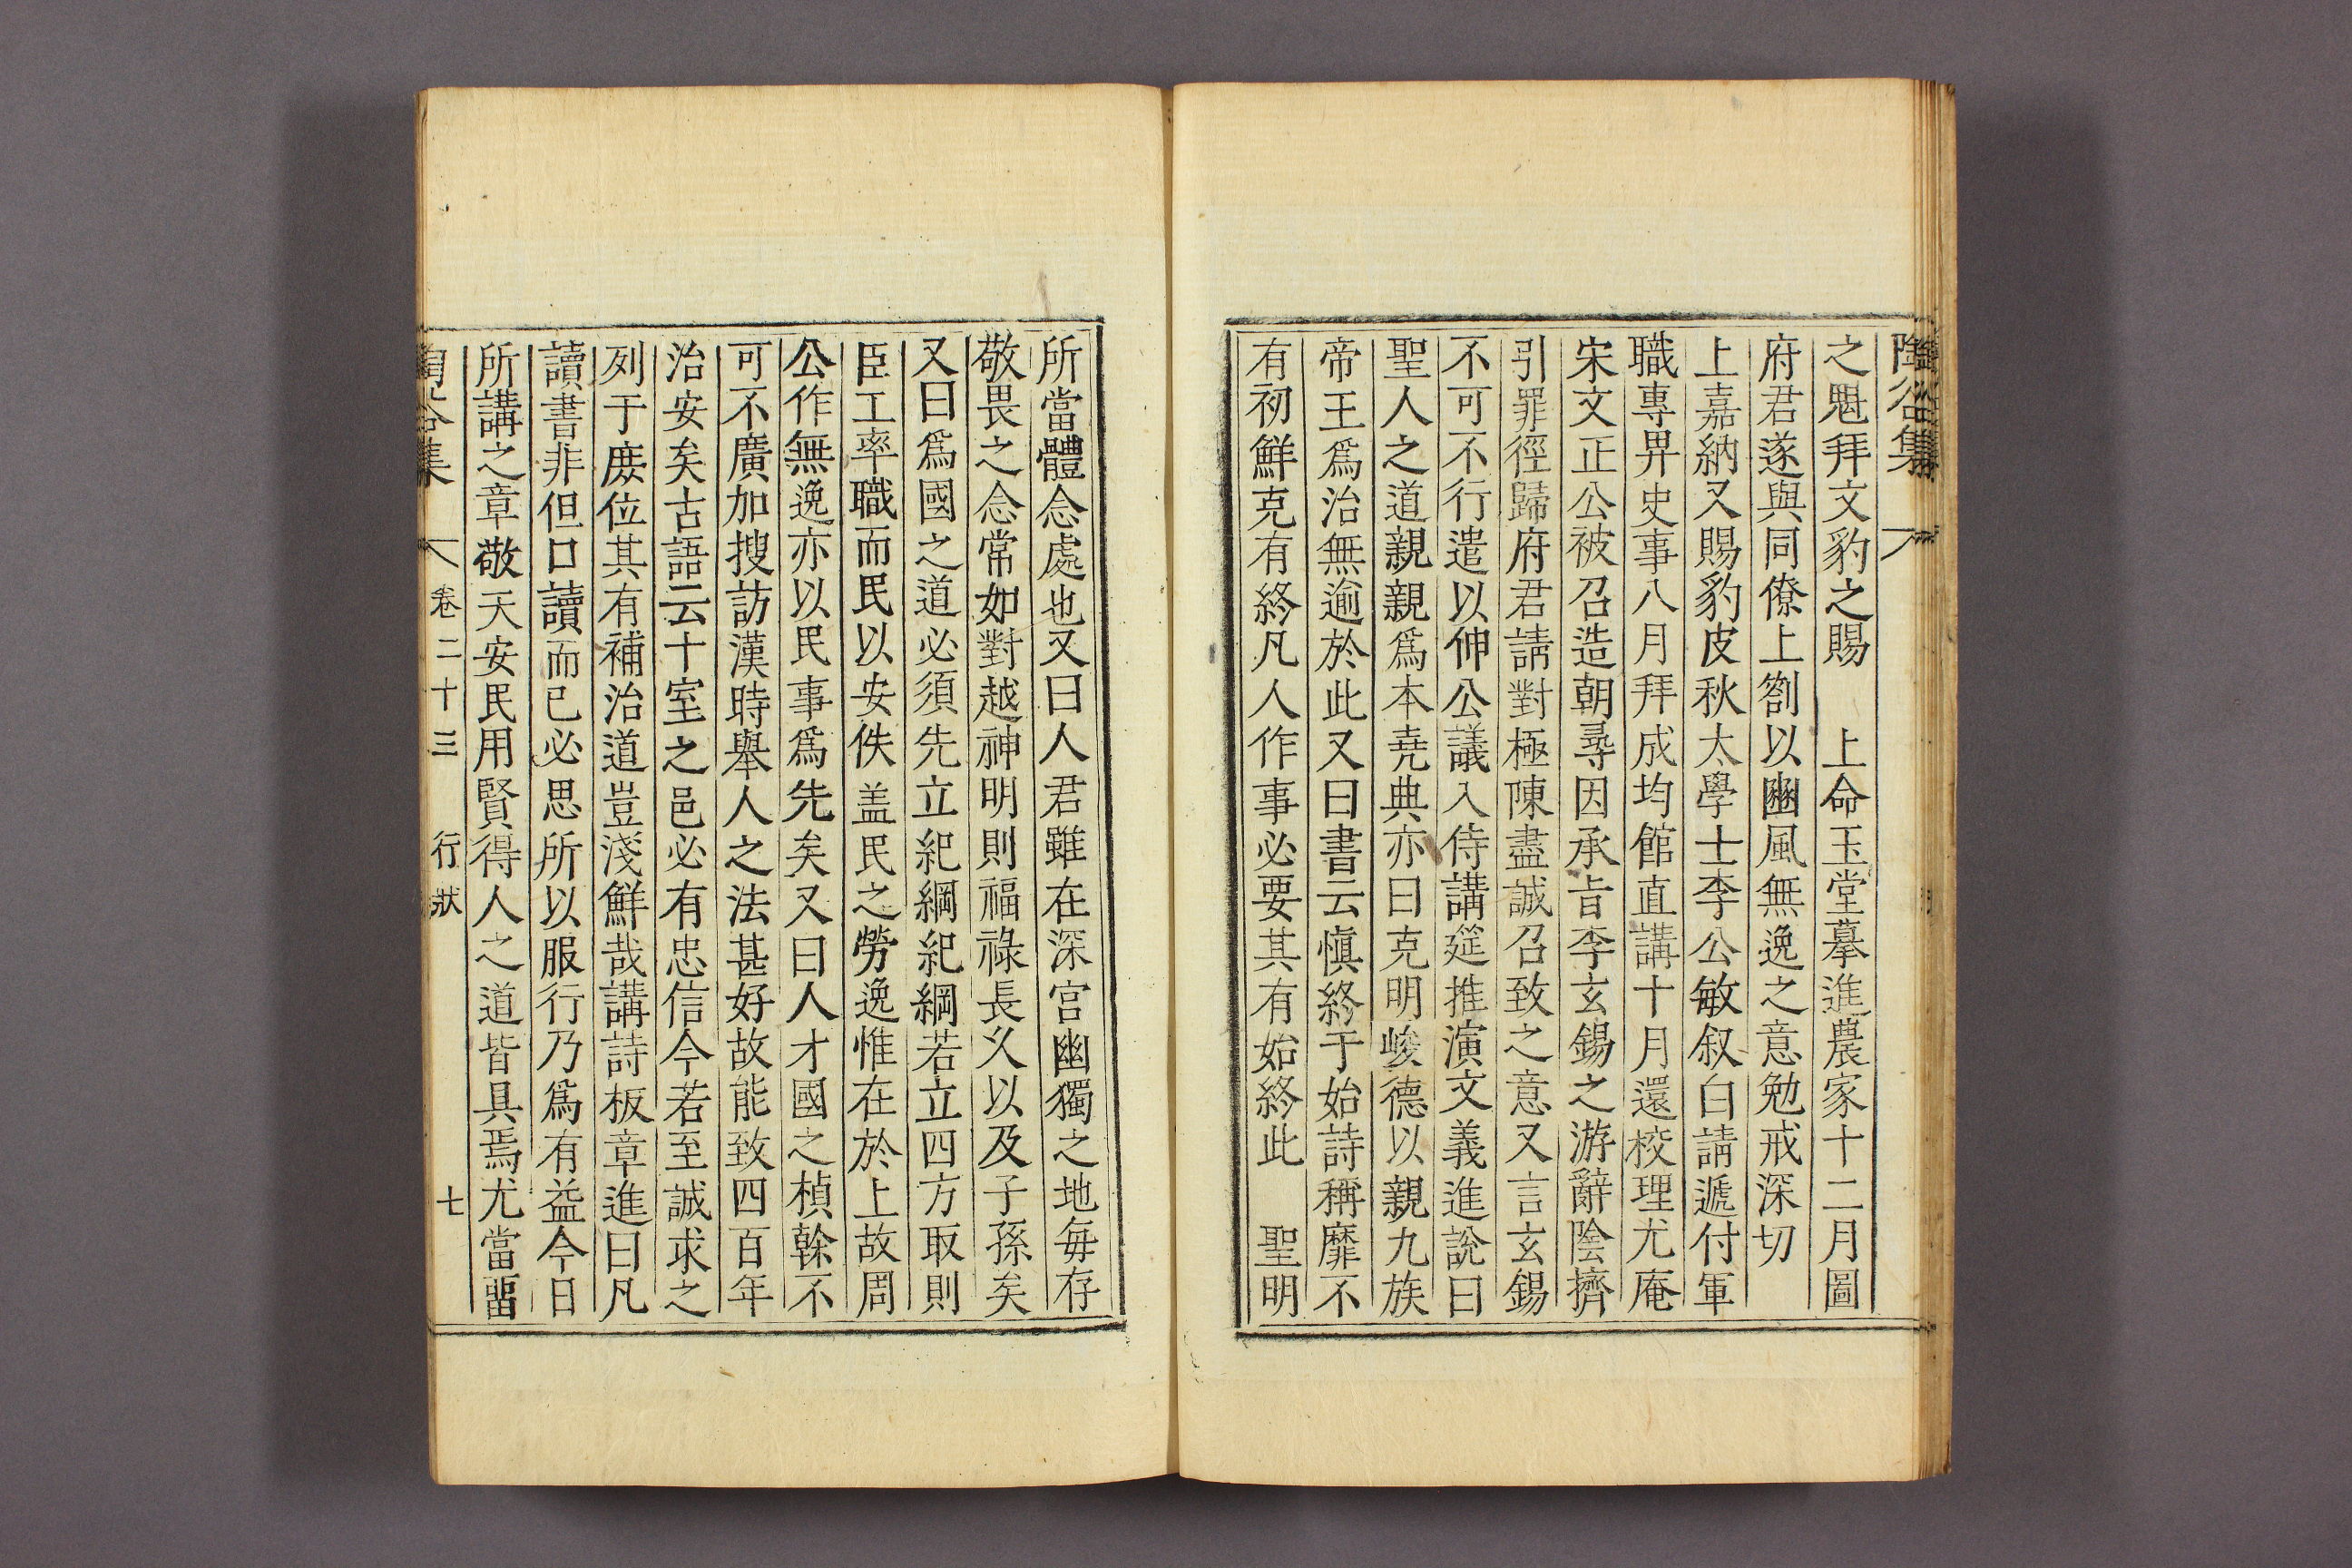 陶谷集
之魁拜文豹之賜　上命玉堂摹進農家十二月圖
府君遂與同僚上劄以豳風無逸之意勉戒深切
上嘉納又賜豹皮秋太學士李公敏叙白請遞付軍
職專畀史事八月拜成均館直講十月還校理尤庵
宋文正公被召造朝尋因承旨李玄錫之游辭陰擠
引罪徑歸府君請對極陳盡誠召致之意又言玄錫
不可不行遣以伸公議入侍講筵推演文義進說曰
聖人之道親親爲本堯典亦曰克明峻德以親九族
帝王爲治無逾於此又曰書云愼終于始詩稱靡不
有初鮮克有終凡人作事必要其有始終此　聖明
所當體念處也又曰人君雖在深宮幽獨之地每存
敬畏之念常如對越神明則福祿長久以及子孫矣
又曰爲國之道必須先立紀綱紀綱若立四方取則
臣工率職而民以安佚盖民之勞逸惟在於上故周
公作無逸亦以民事爲先矣又曰人才國之楨榦不
可不廣加搜訪漢時舉人之法甚好故能致四百年
治安矣古語云十室之邑必有忠信今若至誠求之
列于庶位其有補治道豈淺鮮哉講詩板章進曰凡
讀書非但口讀而已必思所以服行乃爲有益今日
所講之章敬天安民用賢得人之道皆具焉尤當留
陶谷集　卷二十三　行狀　七